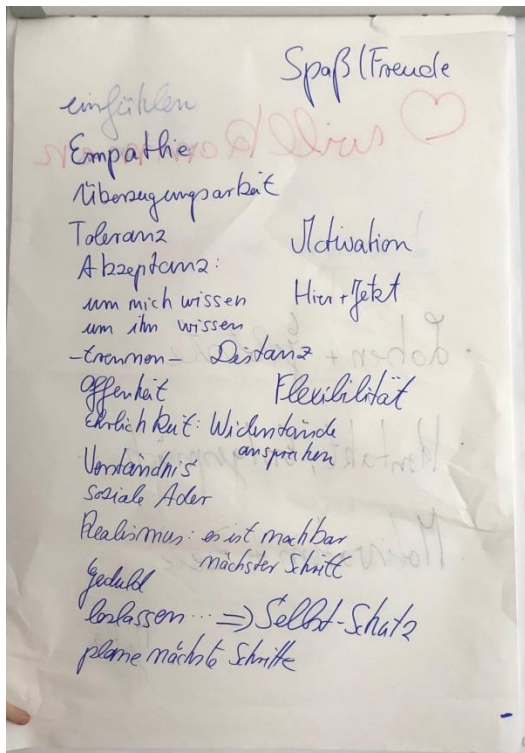 Spaß/Freude
einfühlen
Empathie
Überzeugungsarbeit
Toleranz Motivation
Akzeptanz:
um mich wissen Hier + Jetzt
um ihn wissen
- trennen - Distanz
Offenheit Flexibilität
Ehrlichkeit: Widerstände
ansprechen
Verständnis
soziale Ader
Realismus: es ist machbar
nächster Schritt
Geduld
loslassen ... => Selbst-Schutz
plane nächste Schritte